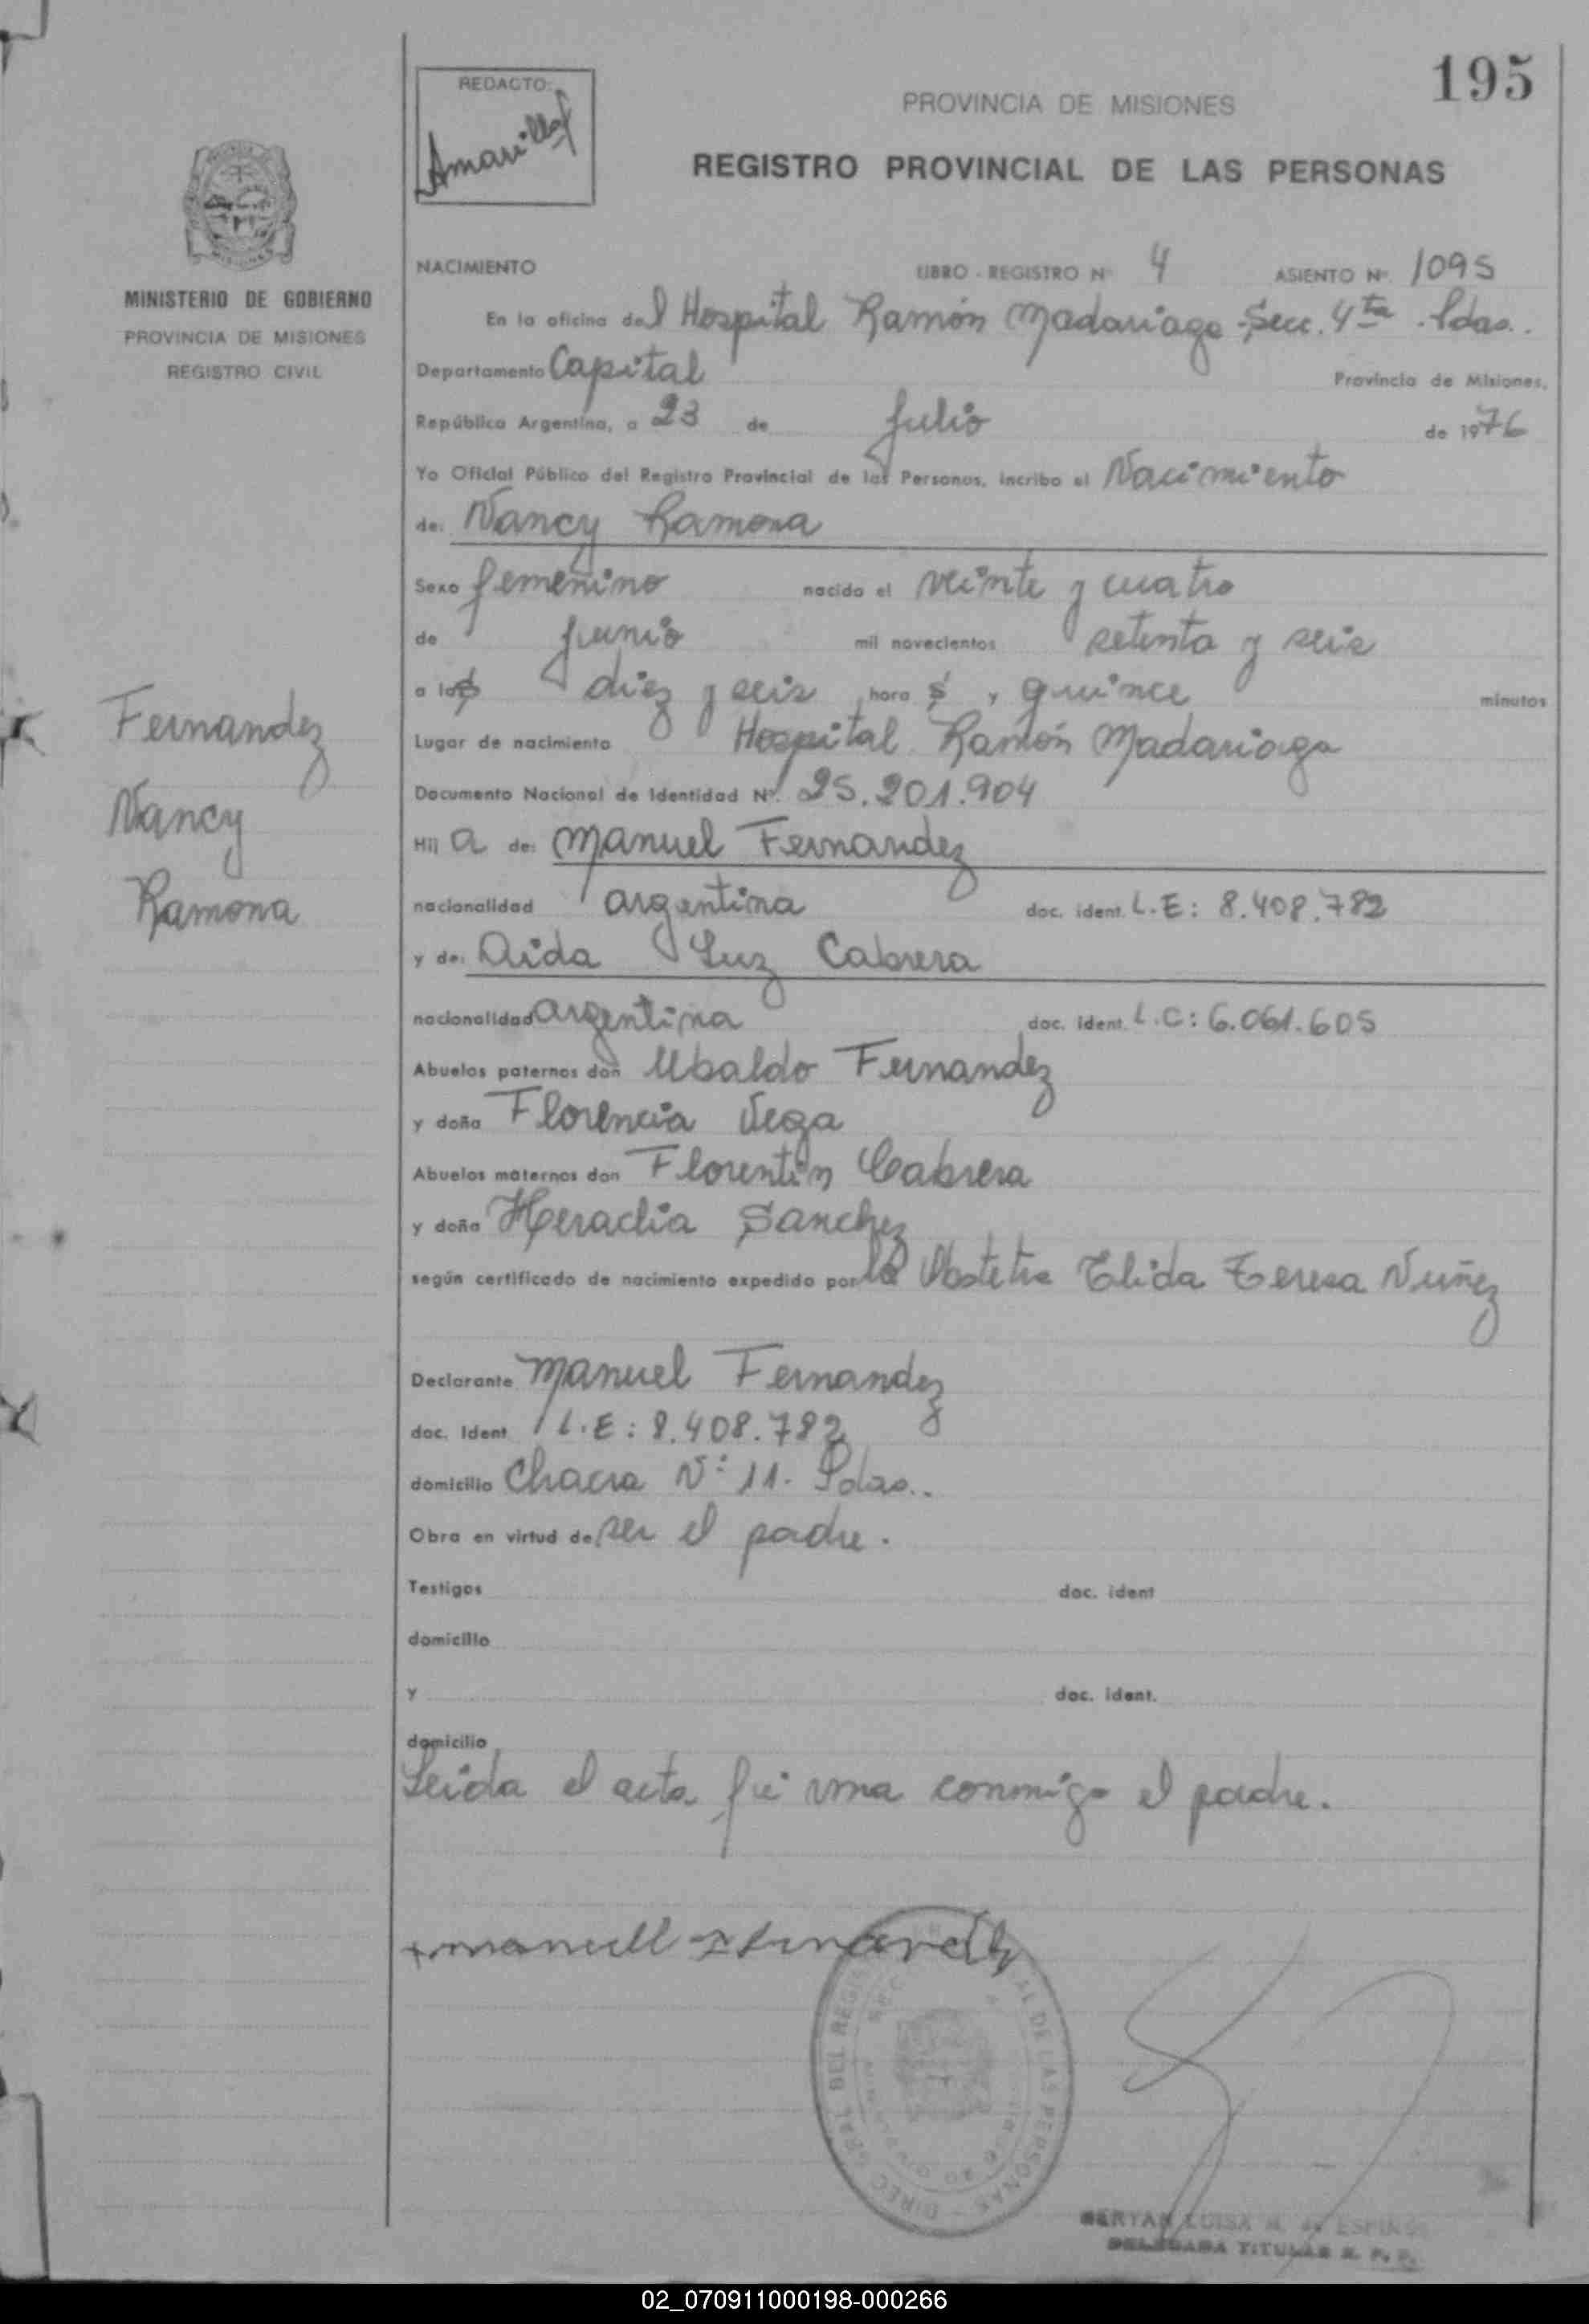 195
REDACTO:
Amarilla
PROVINCIA DE MISIONES
REGISTRO PROVINCIAL DE LAS PERSONAS
MINISTERIO DE GOBIERNO
PROVINCIA DE MISIONES
REGISTRO CIVIL
NACIMIENTO LIBRO - REGISTRO Nº 4 ASIENTO Nº. 1095
En la oficina del Hospital Ramón Madariaga - Secc. 4ta. Pdas..
Departamento Capital Provincia de Misiones,
República Argentina, a 23 de Julio de 1976
Yo Oficial Público del Registro Provincial de las Personas, incribo el Nacimiento
de: Nancy Ramona
Sexo femenino nacido el veinte y cuatro
de junio mil novecientos setenta y seis
a las diez y seis hora s y quince minutos
Fernandez
Nancy
Ramona
Lugar de nacimiento Hospital Ramón Madariaga
Documento Nacional de Identidad Nº. 25.201.904
Hij a de: Manuel Fernandez
nacionalidad argentina doc. ident. L.E: 8.408.782
y de: Aida Luz Cabrera
nacionalidad argentina doc. ident. L.C: 6.061.605
Abuelos paternos don Ubaldo Fernandez
y doña Florencia Vega
Abuelos maternos don Florentin Cabrera
y doña Heraclia Sanchez
según certificado de nacimiento expedido por la Obstetra Elida Teresa Nuñez
Declarante Manuel Fernandez
doc. Ident L.E: 8.408.782
domicilio Chacra Nº 11. Pdas..
Obra en virtud de ser el padre.
Testigos doc. ident
domicilio
y doc. ident.
domicilio
Leida el acta firma conmigo el padre.
DIREC. GRAL DEL REGIS AL DE LAS PERSONAS
LUISA M. de ESPIN
DELEGADA TITULAR R. P. P.
02_070911000198-000266